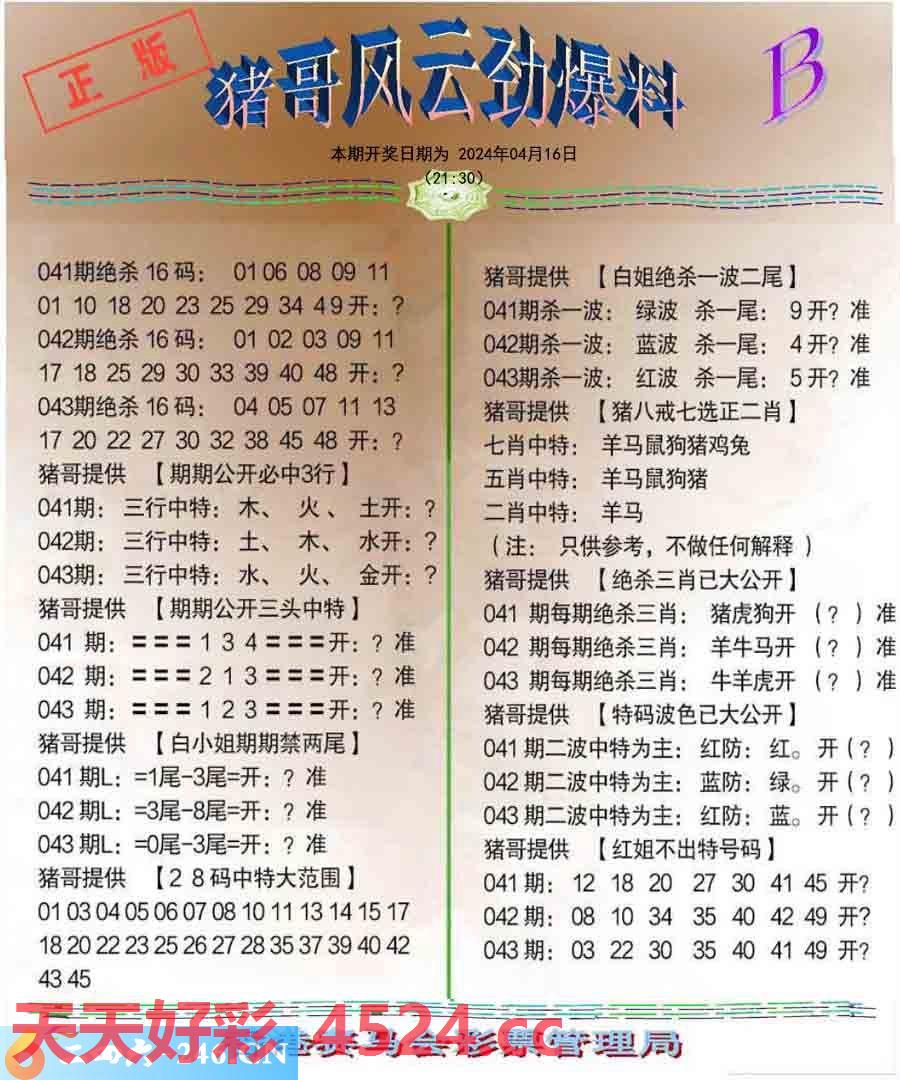 正版
猪哥风云劲爆料
B
本期开奖日期为 2024年04月16日
(21:30)
041期绝杀16码： 01 06 08 09 11
01 10 18 20 23 25 29 34 49开：？
042期绝杀16码： 01 02 03 09 11
17 18 25 29 30 33 39 40 48 开：？
043期绝杀16码： 04 05 07 11 13
17 20 22 27 30 32 38 45 48 开：？
猪哥提供 【期期公开必中3行】
041期：三行中特：木、 火、 土开：？
042期：三行中特：土、 木、 水开：？
043期：三行中特：水、 火、 金开：？
猪哥提供 【期期公开三头中特】
041 期：===1 3 4===开：？准
042 期：===2 1 3===开：？准
043 期：===1 2 3===开：？准
猪哥提供 【白小姐期期禁两尾】
041期L：=1尾-3尾=开：？准
042期L：=3尾-8尾=开：？准
043期L：=0尾-3尾=开：？准
猪哥提供 【28码中特大范围】
01 03 04 05 06 07 08 10 11 13 14 15 17
18 20 22 23 25 26 27 28 35 37 39 40 42
43 45
猪哥提供 【白姐绝杀一波二尾】
041期杀一波： 绿波 杀一尾： 9开？准
042期杀一波： 蓝波 杀一尾： 4开？准
043期杀一波： 红波 杀一尾： 5开？准
猪哥提供 【猪八戒七选正二肖】
七肖中特： 羊马鼠狗猪鸡兔
五肖中特： 羊马鼠狗猪
二肖中特： 羊马
（注： 只供参考，不做任何解释）
猪哥提供 【绝杀三肖已大公开】
041 期每期绝杀三肖： 猪虎狗开 （？）准
042 期每期绝杀三肖： 羊牛马开 （？）准
043 期每期绝杀三肖： 牛羊虎开 （？）准
猪哥提供 【特码波色已大公开】
041期二波中特为主：红防：红。开（？）
042期二波中特为主：蓝防：绿。开（？）
043期二波中特为主：红防：蓝。开（？）
猪哥提供 【红姐不出特号码】
041期： 12 18 20 27 30 41 45 开？
042期： 08 10 34 35 40 42 49 开？
043期： 03 22 30 35 40 41 49 开？
天天好彩 4524.cc
港赛马会彩票管理局